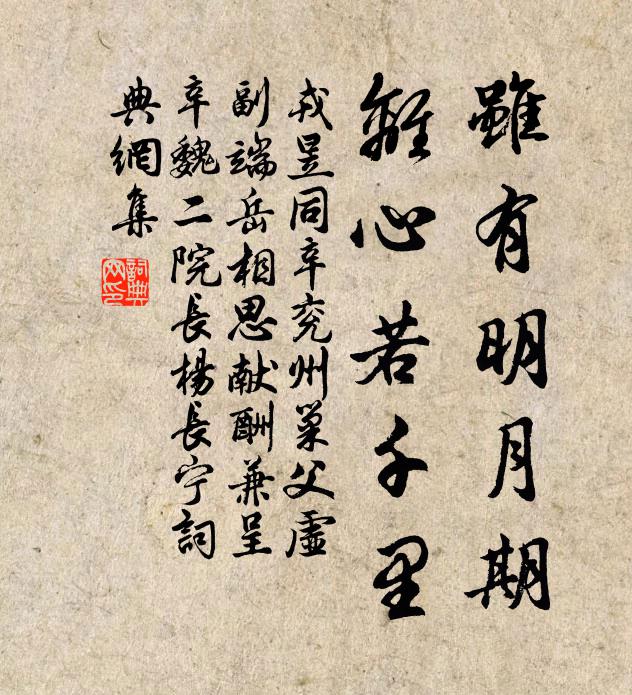 雖有明月期
離心若千里
戎昱同辛兖州巢父虛
副端岳相思献酬兼呈
辛魏二院長楊長宁詞
典網集
詞典网印